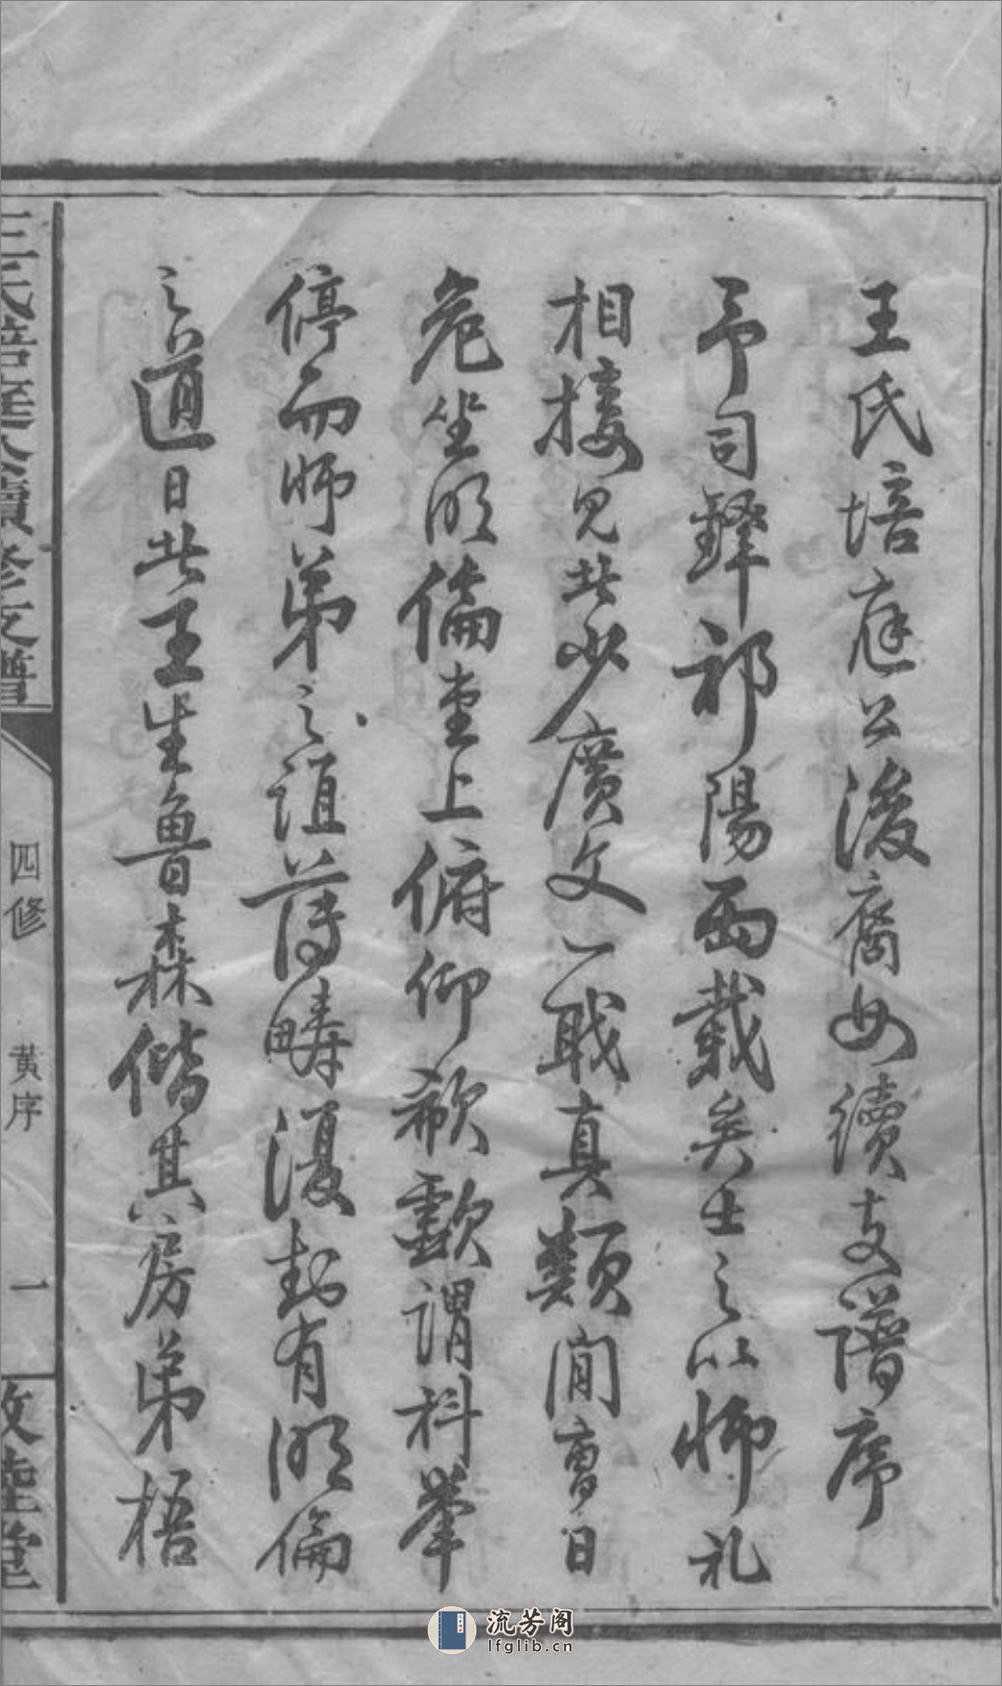 王氏培庭公後裔女續支譜序
予司鐸祁陽兩載矣士之以師礼
相接見者少廣文一職真類閒曹日
危坐明倫堂上俯仰欷歔謂科舉
停而師弟之誼薄疇復知有明倫
之道日者王生魯森偕其房弟梧
王氏培庭公續修支譜
四修 黃序 一
敦睦堂
流芳阁
lfglib.cn